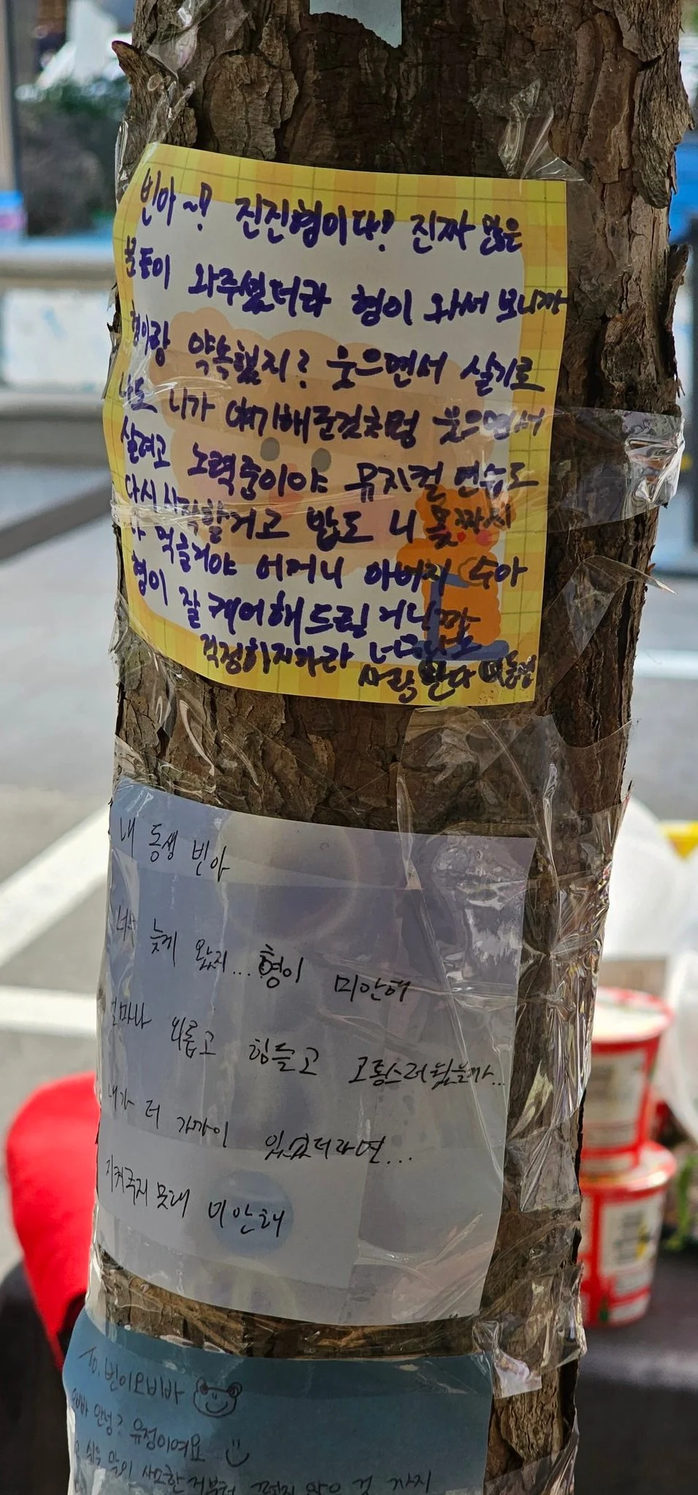 빈아~! 진진형이다! 진짜 많은
분들이 와주셨더라 형이 와서 보니까
형이랑 약속했지? 웃으면서 살기로
나도 니가 얘기해준것처럼 웃으면서
살려고 노력중이야 뮤지컬 연습도
다시 시작할거고 밥도 니 몫까지
다 먹을거야 어머니 아버지 수아
형이 잘 케어해드릴거니깐
걱정하지마라 사랑한다 내동생
내 동생 빈아
너무 늦게 왔지... 형이 미안해
얼마나 외롭고 힘들고 고통스러웠을까...
내가 더 가까이 있었더라면...
지켜주지 못해 미안해
To. 빈이오빠
오빠 안녕? 유정이에요
사소한거부터 그렇지 않은 것 까지